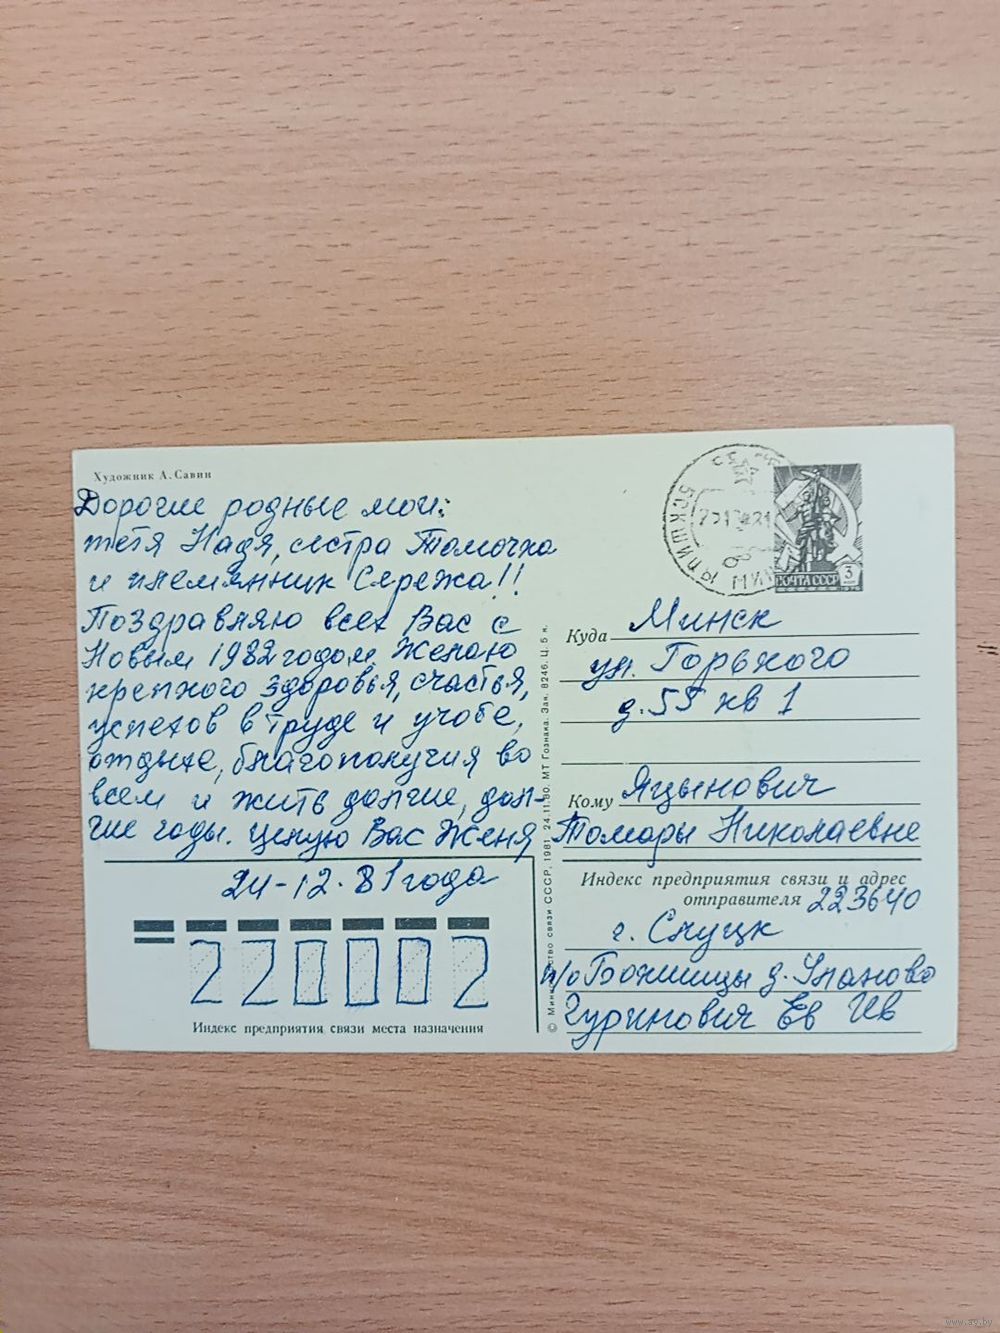 Художник А. Савин
Дорогие родные мои:
тётя Надя, сестра Томочка
и племянник Сережа!!
Поздравляю всех Вас с
Новым 1982 годом. Желаю
крепкого здоровья, счастья,
успехов в труде и учобе,
отдыхе, благополучия во
всем и жить долгие, дол-
гие годы. Целую Вас Женя
24-12-81 года
220002
Индекс предприятия связи места назначения
© Министерство связи СССР, 1981. 24.11.80. МТ Гознака. Зак. 8246. Ц. 5 к.
ПОЧТА СССР
3
Куда Минск
ул. Горького
д. 55 кв 1
Кому Яцынович
Томары Николаевне
Индекс предприятия связи и адрес
отправителя 223640
г. Слуцк
п/о Бокшицы д. Уланово
Гуринович Ев Ив
www.ay.by